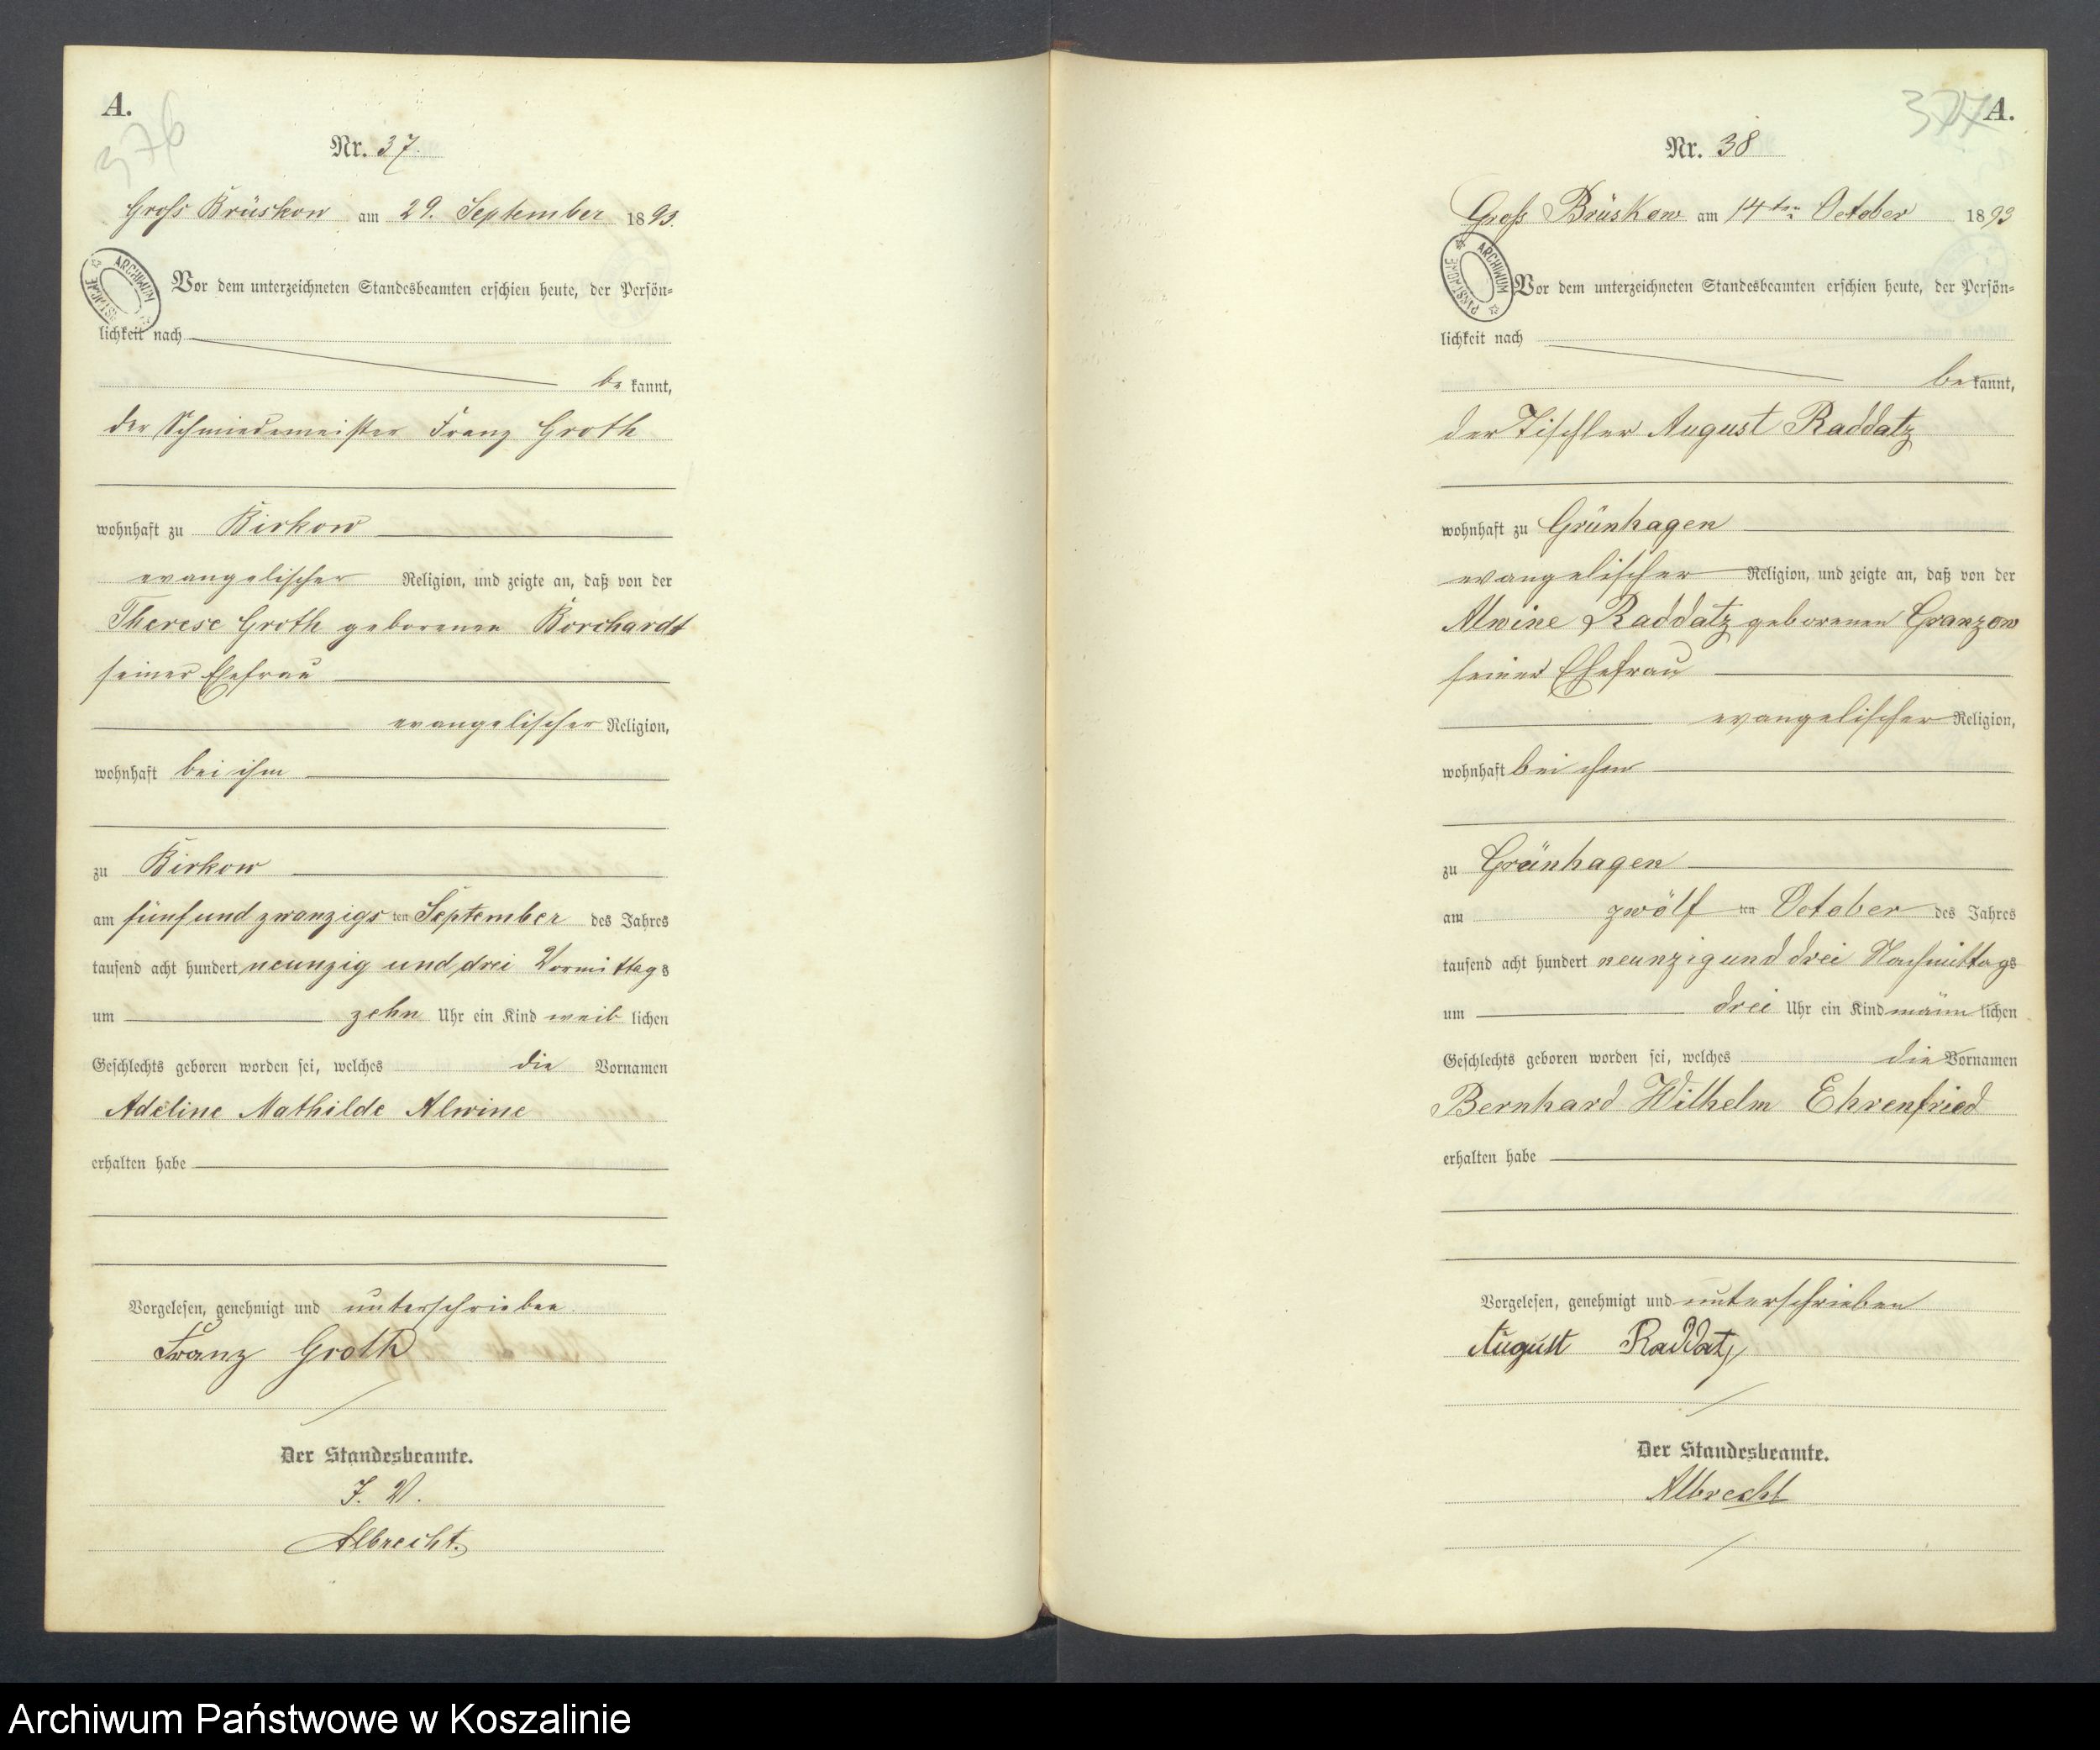 A.
376
Nr. 37.
Groß Brüskow am 29. September 1893.
ARCHIWUM
Vor dem unterzeichneten Standesbeamten erschien heute, der Persön-
lichkeit nach
be kannt,
der Schmiedemeister Franz Groth
wohnhaft zu Birkow
evangelischer Religion, und zeigte an, daß von der
Therese Groth geborenen Borchardt
seiner Ehefrau
evangelischer Religion,
wohnhaft bei ihm
zu Birkow
am fünfundzwanzigs ten September des Jahres
tausend acht hundert neunzig und drei Vormittags
um zehn Uhr ein Kind weib lichen
Geschlechts geboren worden sei, welches die Vornamen
Adeline Mathilde Alwine
erhalten habe
Vorgelesen, genehmigt und unterschrieben.
Franz Groth
Der Standesbeamte.
J. V.
Albrecht.
377
A.
Nr. 38
Groß Brüskow am 14ten October 1893
ARCHIWUM PAŃSTWOWE
Vor dem unterzeichneten Standesbeamten erschien heute, der Persön-
lichkeit nach
be kannt,
der Tischler August Raddatz
wohnhaft zu Grünhagen
evangelischer Religion, und zeigte an, daß von der
Alwine Raddatz geborenen Granzow
seiner Ehefrau
evangelischer Religion,
wohnhaft bei ihm
zu Grünhagen
am zwölf ten October des Jahres
tausend acht hundert neunzig und drei Nachmittags
um drei Uhr ein Kind männ lichen
Geschlechts geboren worden sei, welches die Vornamen
Bernhard Wilhelm Ehrenfried
erhalten habe
Vorgelesen, genehmigt und unterschrieben
August Raddatz
Der Standesbeamte.
Albrecht
Archiwum Państwowe w Koszalinie